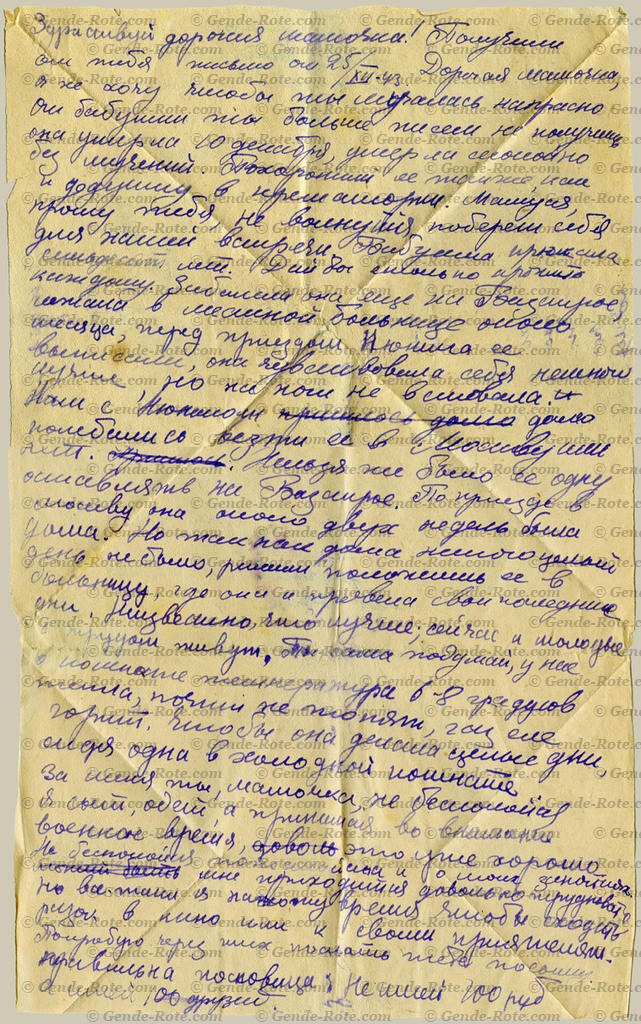 Здраствуй дорогая мамочка! Получили
от тебя письмо от 25/XII-43 Дорогая мамочка,
я не хочу чтобы ты мучалась напрасно
От бабушки ты больше писем не получишь
она умерла 10 декабря умерла спокойно
без мучений. Похоронили ее также, как
и дедушку в крематории. Мамуся,
прошу тебя, не волнуйся, побереги себя
для нашей встречи. Бабушка прожила
лет. Дай бог столько прожить
каждому. Заболела она еще на
лежала в местной больнице около
месяца перед приездом ее
выписали, она чувствовала себя немного
лучше, но на ноги не вставала. И
нам с
везти ее в Москву
Нельзя же было ее одну
оставлять на По приезде в
Москву она около двух недель была
дома. Но так как дома никого целый
день не было, решили положить ее в
больницу, где она и провела свои последние
дни. Неизвестно, что лучше; сейчас и молодые
с трудом живут, Ты сама подумай, у нас
в комнате температура 6-8 градусов
тепла, почти не топят, газ еле
горит. Чтобы она делала целые дни,
одна в холодной комнате
За меня ты, мамочка, не беспокойся
Я сыт, обут а принимая во внимание
военное время, это уже хорошо
Не беспокойся также и о моих занятиях
мне приходится довольно трудновато
но все таки я нахожу время чтобы сходить
разок в кино или к своим приятелям.
Попробую через них послать тебе посылку
правильна пословица: Не имей 100 руб
а имей 100 друзей.
© Gende-Rote.com